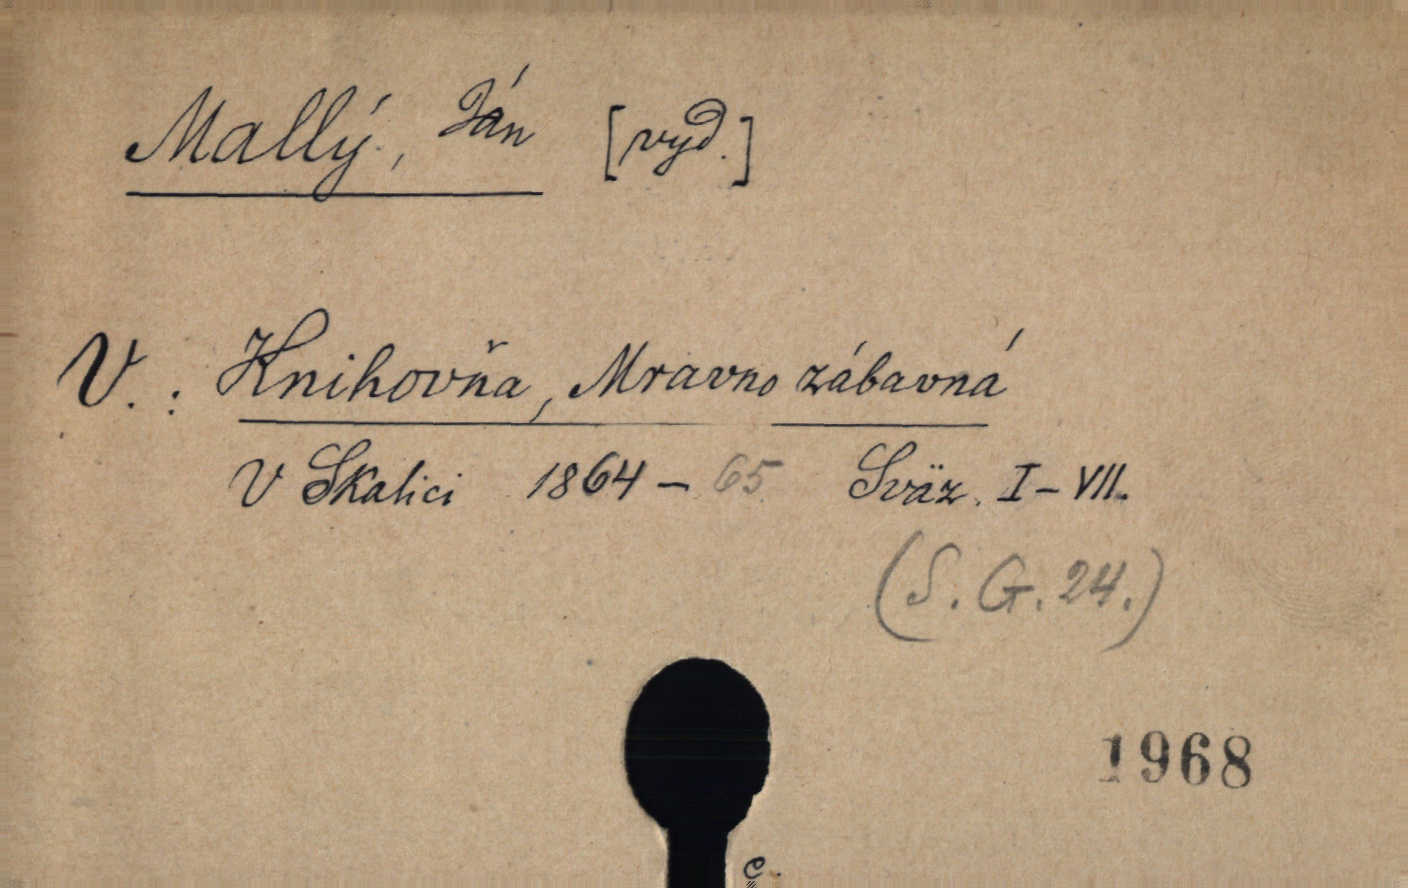 Mallý, Ján [vyd.]
V. : Knihovňa, Mravno zábavná
V Skalici 1864 – 65 Sväz. I – VII.
(S. G. 24.)
1968
c.